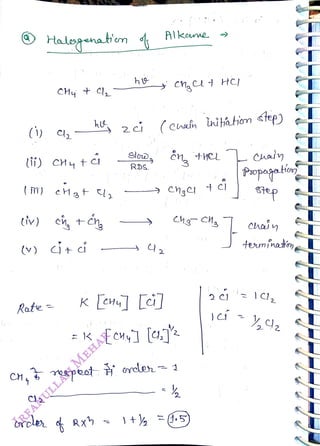 (a) Halogenation of Alkane →
CH4 + Cl2 —hν→ CH3Cl + HCl
(i) Cl2 —hν→ 2Cl• (chain initiation step)
(ii) CH4 + Cl• —Slow, RDS→ C•H3 + HCl
(iii) C•H3 + Cl2 ⟶ CH3Cl + Cl•
chain
Propagation
step
(iv) C•H3 + C•H3 ⟶ CH3–CH3
(v) Cl• + Cl• ⟶ Cl2
chain
termination
Rate = K [CH4] [Cl•]
= K [CH4] [Cl2]^1/2
2Cl• = 1Cl2
1Cl• = 1/2 Cl2
CH4 के respect में order = 1
Cl2 ——— = 1/2
order of Rxn = 1+1/2 = 1.5
IRFANULLAH MEHAR